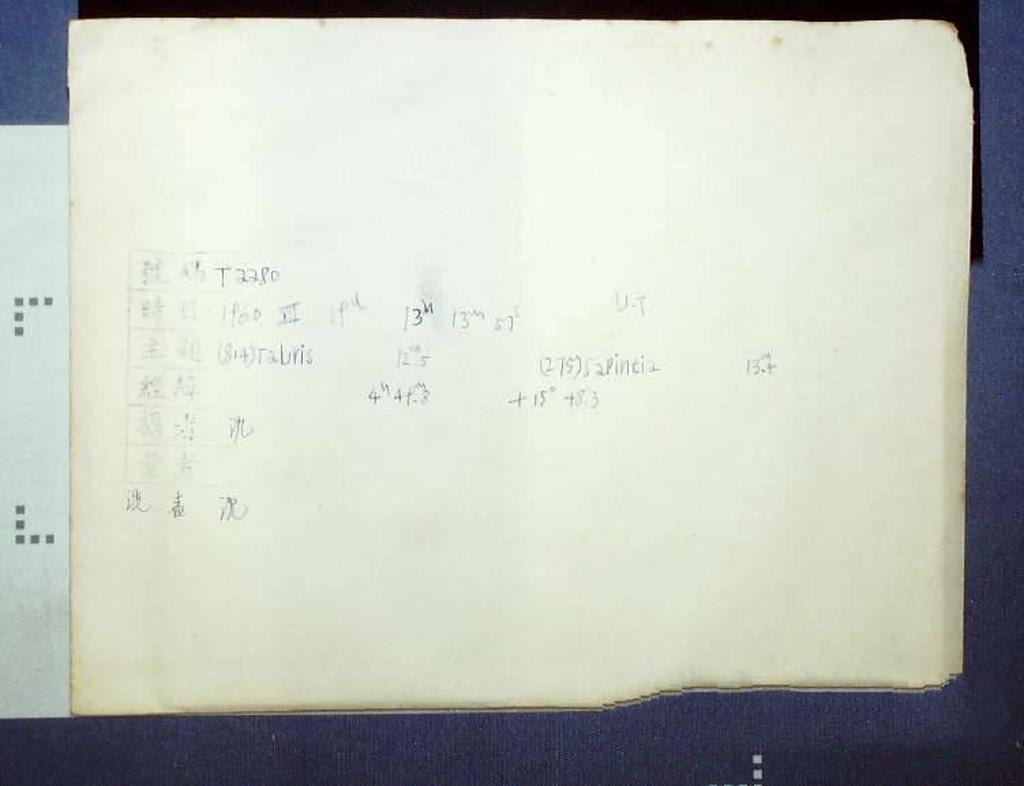 號碼 T2280
時日 1960 XII 19d 13h 13m 57s U.T
主題 (814)Tauris 12m.5 (275)Sapientia 13m.4
經緯 4h 41m.8 +15° 48'.3
攝者 沈
量者
洗者 沈